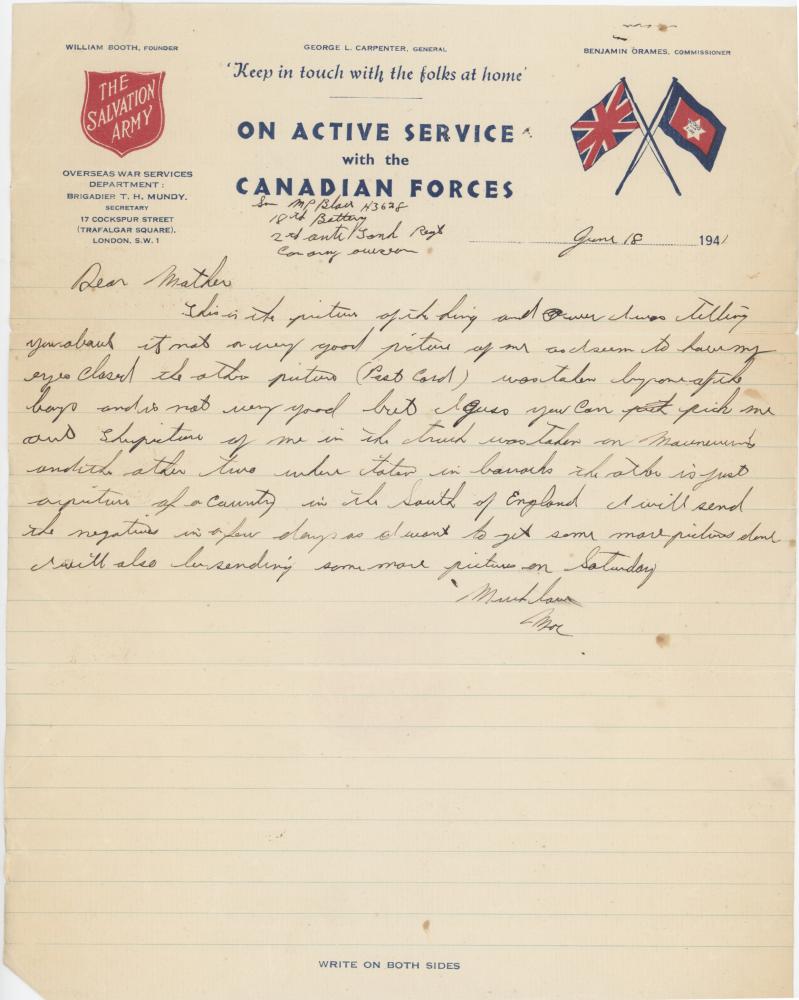 WILLIAM BOOTH, FOUNDER
GEORGE L. CARPENTER, GENERAL
BENJAMIN ORAMES, COMMISSIONER
'Keep in touch with the folks at home'
THE
SALVATION
ARMY
ON ACTIVE SERVICE
with the
CANADIAN FORCES
OVERSEAS WAR SERVICES
DEPARTMENT:
BRIGADIER T. H. MUNDY,
SECRETARY
17 COCKSPUR STREET
(TRAFALGAR SQUARE),
LONDON, S.W.1
MP Blair H3628
18th Battery
2nd anti Tank Regt
Can army oversea
June 18 1941
Dear Mother
This is the picture of the King and I was telling
you about it not a very good picture of me as I seem to have my
eyes closed the other picture (Post Card) was taken by one of the
boys and is not very good but I guess you can pick me
out The picture of me in the truck was taken on
and the other two where taken in barracks the other is just
a picture of a County in the South of England I will send
the negatives in a few days as I want to get some more pictures done
I will also be sending some more pictures on Saturday
Much love
Moe
WRITE ON BOTH SIDES